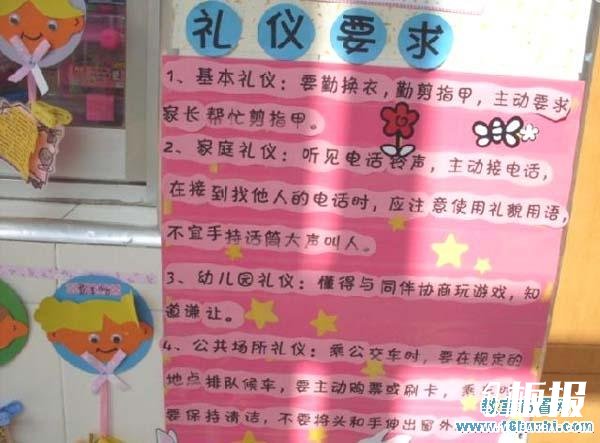 礼仪要求
1、基本礼仪：要勤换衣，勤剪指甲，主动要求
家长帮忙剪指甲。
2、家庭礼仪：听见电话铃声，主动接电话，
在接到找他人的电话时，应注意使用礼貌用语，
不宜手持话筒大声叫人。
3、幼儿园礼仪：懂得与同伴协商玩游戏，知
道谦让。
4、公共场所礼仪：乘公交车时，要在规定的
地点排队候车，要主动购票或刷卡，乘车时
要保持清洁，不要将头和手伸出窗外
板报
www.16hxzhi.com